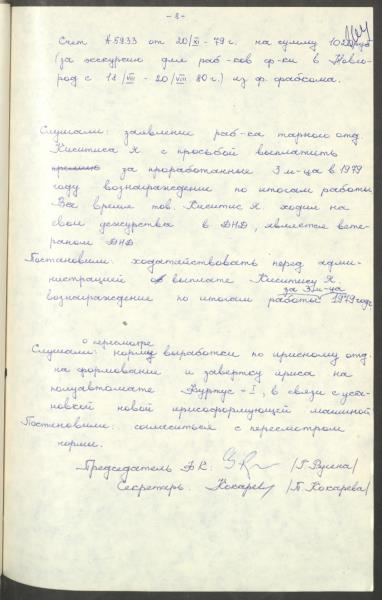 - 8 -
Счет №5933 от 20/XI - 79 г. на сумму руб
(за экскурсию для раб-ков ф-ки в Новго-
род с 18/VIII - 20/VIII 80 г.) из ф. фабкома.
Слушали: заявление раб-ка тарного отд.
Киситиса Я. с просьбой выплатить
за проработанные 3 м-ца в 1979
году вознаграждение по итогам работы
Все время тов. Киситис Я ходил на
свои дежурства в ДНД, является вете-
раном ДНД
Постановили: ходатайствовать перед адми-
нистрацией о выплате Киситису Я.
за 3 м-ца
вознаграждение по итогам работы 1979 года.
о пересмотре
Слушали: норму выработки по ирисному отд.
на формование и завертку ириса на
полуавтомате - I, в связи с уста-
новкой новой ирисоформующей машиной
Постановили: согласиться с пересмотром
нормы.
Председатель ФК: /Г. Рулена/
Секретарь. Кокарева /Т. Кокарева/